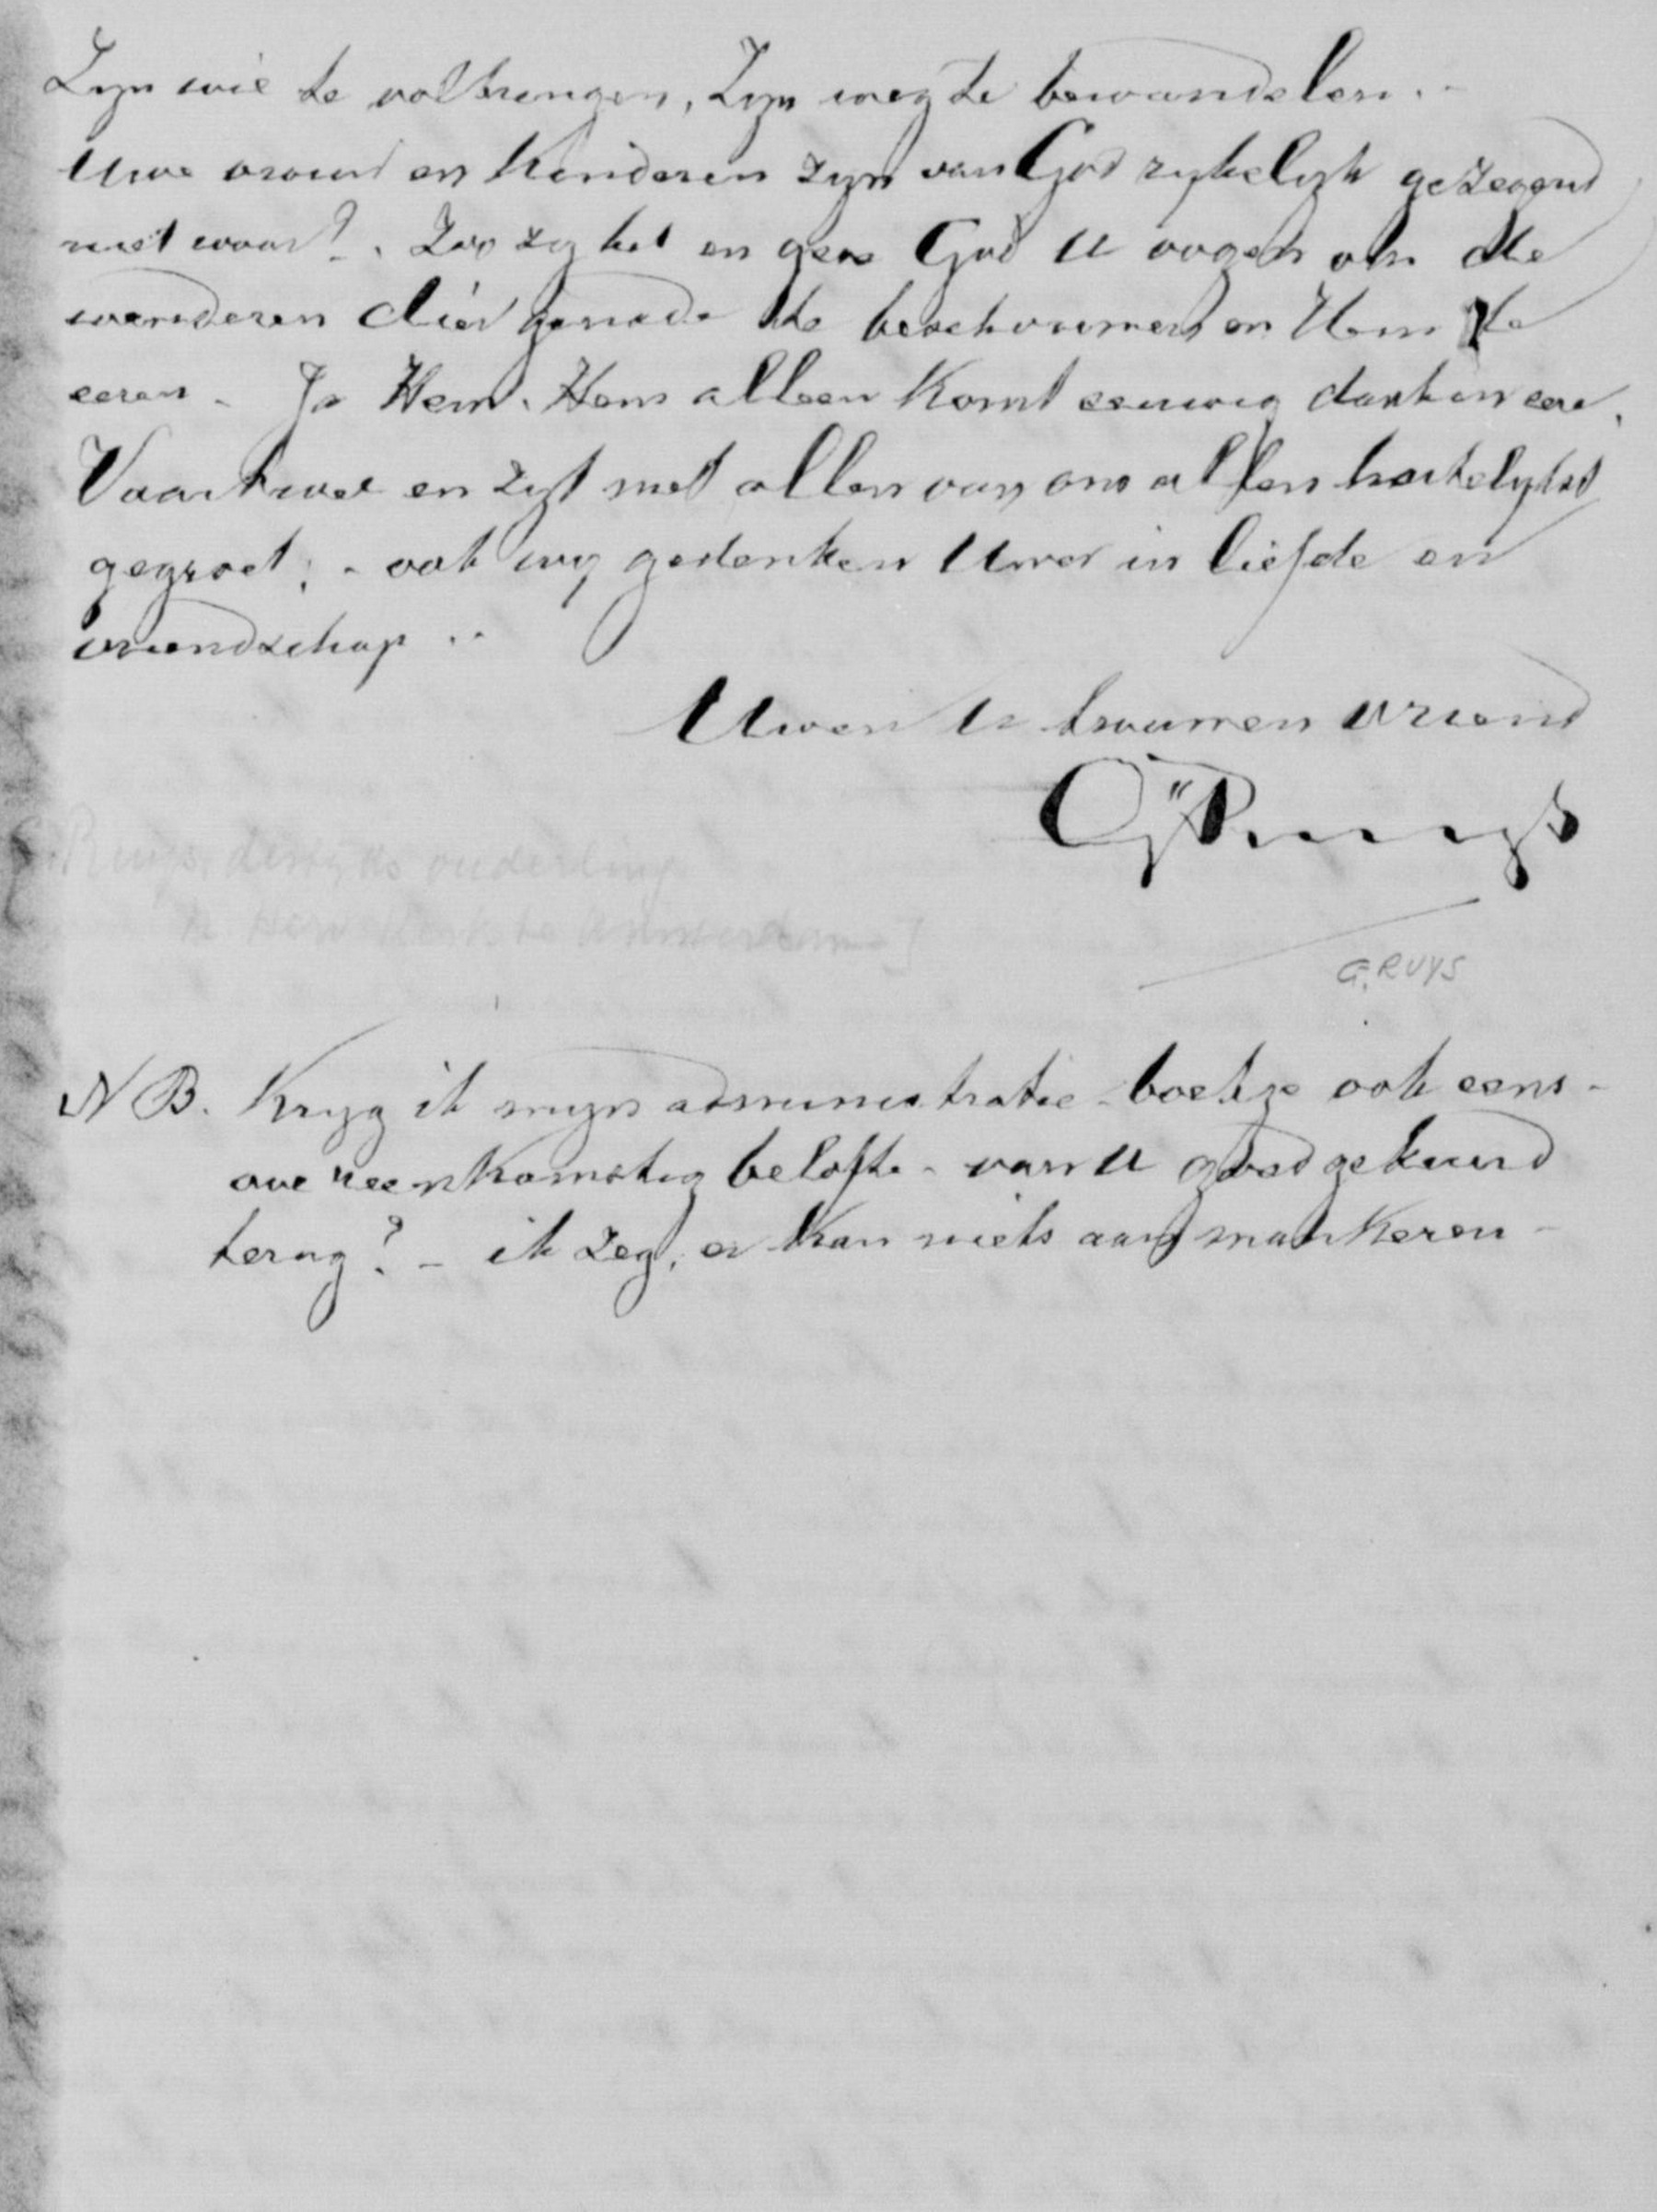 Zyn wil te volbrengen, Zyn weg te bewandelen. -
Uwe vrouw en Kinderen zyn van God rykelyk gezegend
niet waar? . Zoo zy het en geve God U oogen om die
wonderen dier genade te beschouwen en Hem te
eeren - Ja Hem. Hem alleen Komt eeuwig dank en eere.
Vaartwel en zyt met allen van ons allen hartelykst
gegroet; - ook wy gedenken Uwer in liefde en
vriendschap ..
Uwen U trouwen vriend
G Ruys
Ruys, destijds ouderling
te Amsterdam]
G. RUYS
NB. Kryg ik myn administratie-boekje ook eens -
overeenkomstig belofte - van U goedgekeurd
terug? - ik zeg, er Kan niets aan mankeren -